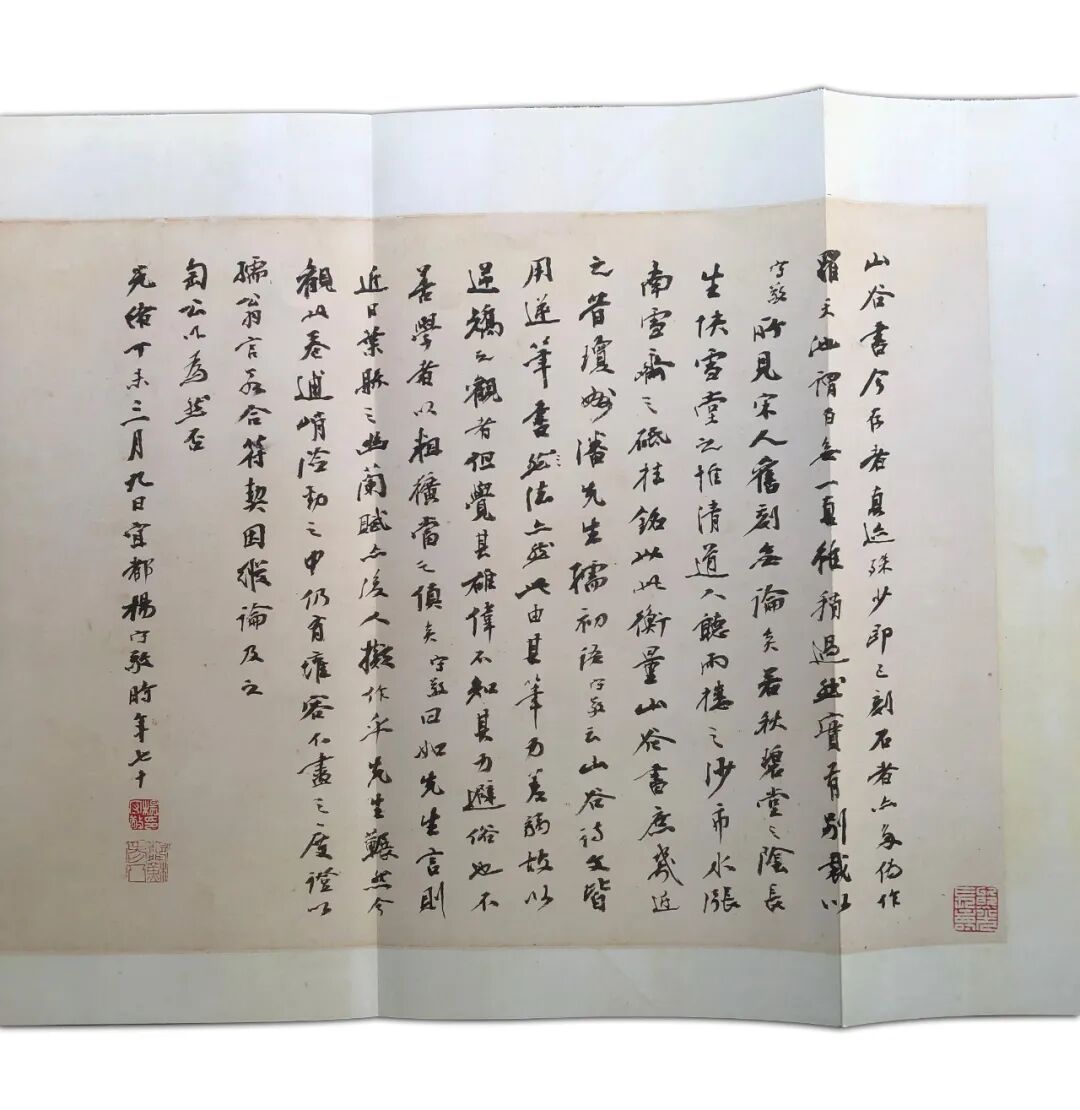 山谷書今存者真迹殊少即已刻石者亦多偽作
羅天池謂百無一真雖稍過然實有別裁以
守敬所見宋人舊刻無論矣若秋碧堂之陰長
生快雪堂之惟清道人聽雨樓之沙市水漲
南雪齋之砥柱銘以此衡量山谷書庶幾近
之昔瓊州潘先生孺初語守敬云山谷詩文皆
用逆筆書法亦然此由其筆力差弱故以
逆矯之觀者但覺其雄偉不知其力避俗也不
善學者以粗獷當之傎矣守敬曰如先生言則
近日葉縣之幽蘭賦亦後人擬作乎先生囅然今
觀此卷逋峭澀勁之中仍有雍容不盡之度證以
孺翁言若合符契因縱論及之
匋公以為然否
光緒丁未三月九日宜都楊守敬時年七十